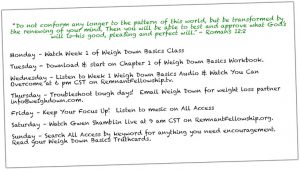 "Do not conform any longer to the pattern of this world, but be transformed by
the renewing of your mind. Then you will be able to test and approve what God's
will is-his good, pleasing and perfect will." - Romans 12:2
Monday - Watch Week 1 of Weigh Down Basics Class
Tuesday - Download & start on Chapter 1 of Weigh Down Basics Workbook.
Wednesday - Listen to Week 1 Weigh Down Basics Audio & Watch You Can
Overcome at 6 pm CST on RemnantFellowship.tv.
Thursday - Troubleshoot tough days! Email Weigh Down for weight loss partner
info@weighdown.com.
Friday - Keep Your Focus Up! Listen to music on All Access
Saturday - Watch Gwen Shamblin live at 9 am CST on RemnantFellowship.org.
Sunday - Search All Access by keyword for anything you need encouragement.
Read your Weigh Down Basics Truthcards.